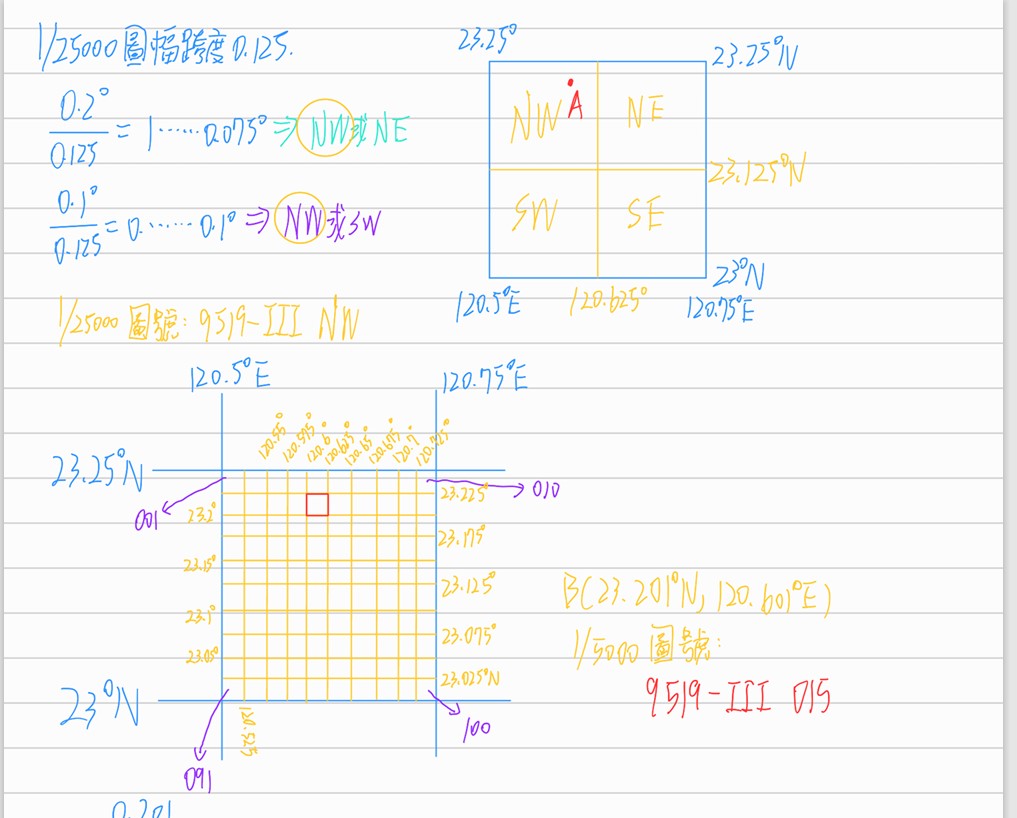 1/25000 圖幅跨度0.125.
0.2°/0.125 = 1 ...... 0.075° ⇒ NW或NE
0.1°/0.125 = 0. ...... 0.1° ⇒ NW或SW
1/25000 圖號: 9519-III NW
23.25°
23.25°N
NW
A
NE
23.125°N
SW
SE
23°N
120.5°E
120.625°
120.75°E
120.5°E
120.75°E
120.55°
120.575°
120.6°
120.625°
120.65°
120.675°
120.7°
120.725°
23.25°N
001
010
23.225°
23.2°
23.175°
23.15°
23.125°
23.1°
23.075°
23.05°
23.025°N
23°N
120.525
091
100
B(23.201°N, 120.601°E)
1/5000 圖號:
9519-III 015
0.201